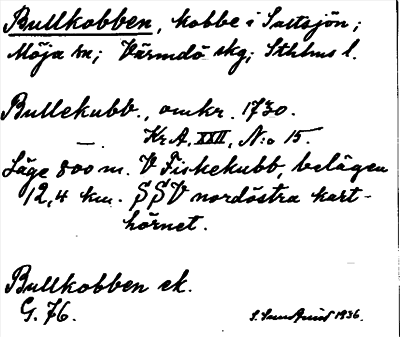 Bullkobben, kobbe i Saltsjön;
Möja sn; Värmdö skg; Sthlms l.
Bullekubb., omkr. 1730.
— . Kr A, XXII, N:o 15.
Läge 800 m. V Fiskekubb, belägen
12,4 km. SSV nordöstra kart-
hörnet.
Bullkobben ek.
G. 76.
1936.